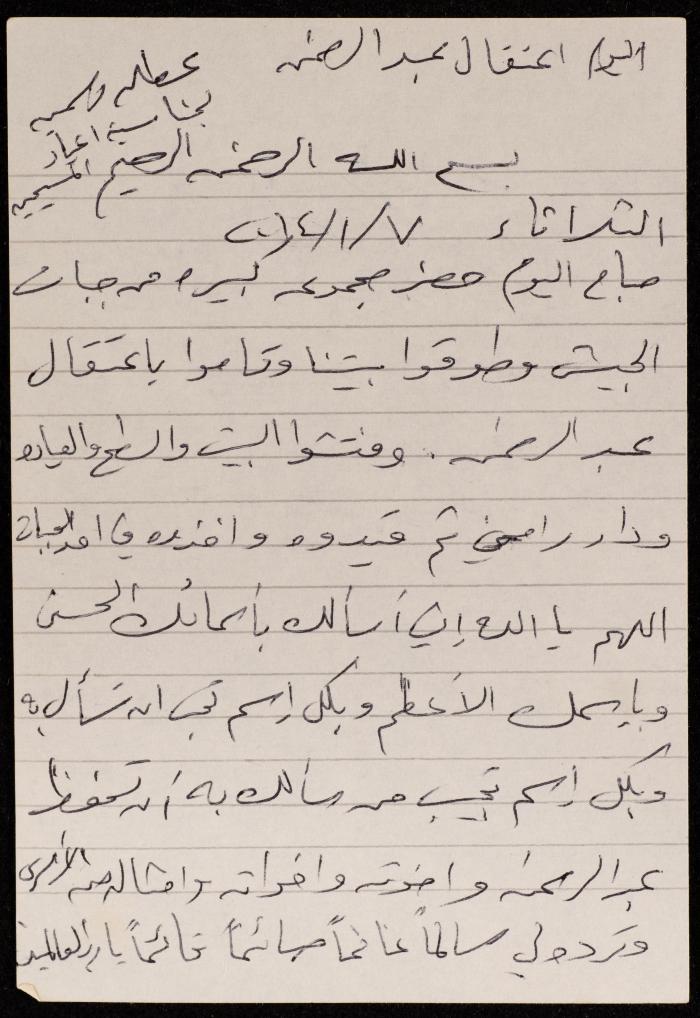 اليوم اعتقال عبد الرحمن
عطله رسميه
بمناسبة اعياد
المسيحيين
بسم الله الرحمن الرحيم
الثلاثاء ٢٠١٤/١/٧
صباح اليوم حضر مجموعه كبيره من جيبات
الجيش وطوقوا بيتنا وقاموا باعتقال
عبد الرحمن . وفتشوا البيت والسطح والعياده
ودار رامي ثم قيدوه واخذوه في احد الجيبات
اللهم يا الله إني أسألك بأسمائك الحسنى
وبإسمك الأعظم وبكل إسم تحب ان تسأل به
وبكل إسم تجيب من سألك به أن تحفظ
عبد الرحمن واخوته واخواته وامثاله من الأسرى
وتردو لي سالماً غانماً صائماً قائماً يا رب العالمين